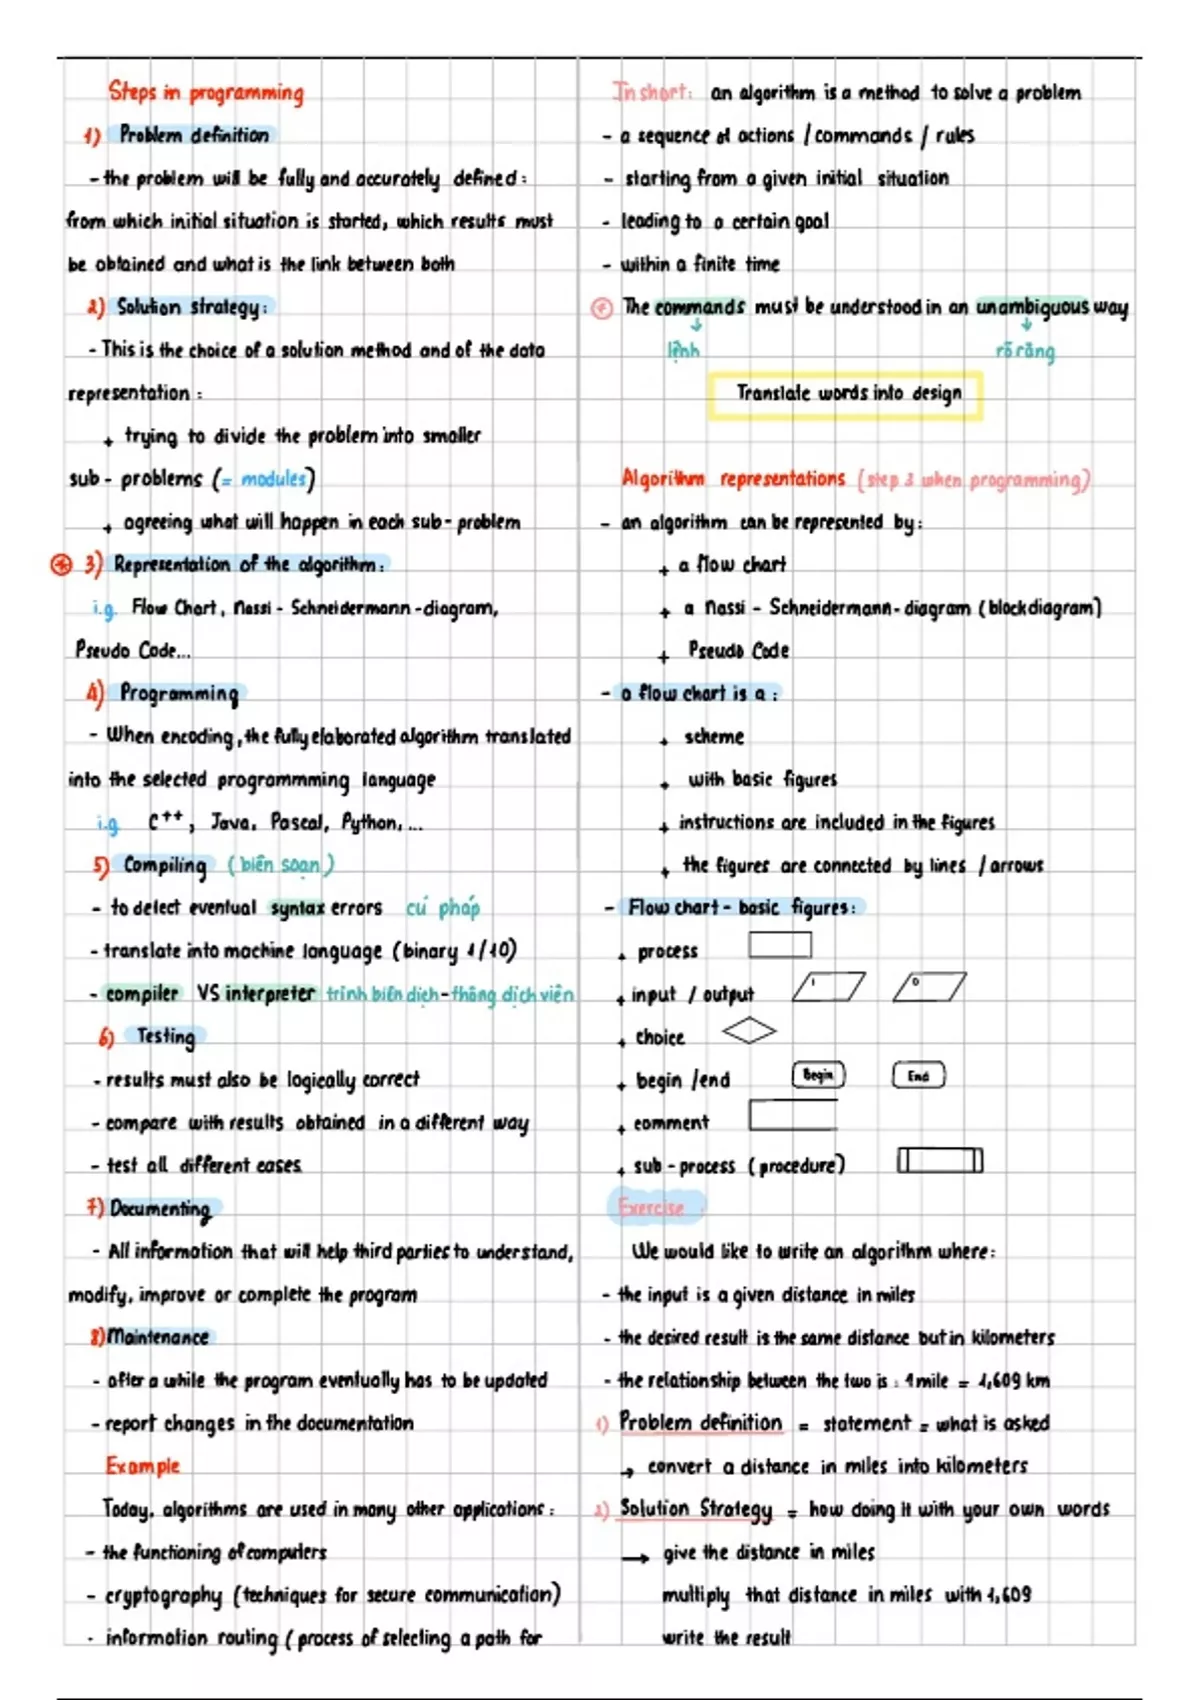 Steps in programming
1) Problem definition
- the problem will be fully and accurately defined:
from which initial situation is started, which results must
be obtained and what is the link between both
2) Solution strategy:
- This is the choice of a solution method and of the data
representation:
+ trying to divide the problem into smaller
sub - problems (= modules)
+ agreeing what will happen in each sub - problem
3) Representation of the algorithm:
i.g. Flow Chart, Nassi - Schneidermann -diagram,
Pseudo Code...
4) Programming
- When encoding, the fully elaborated algorithm translated
into the selected programmming language
i.g C++, Java, Pascal, Python, ...
5) Compiling (biên soạn)
- to detect eventual syntax errors cú pháp
- translate into machine language (binary 1/10)
- compiler VS interpreter trình biên dịch - thông dịch viên
6) Testing
- results must also be logically correct
- compare with results obtained in a different way
- test all different cases
7) Documenting
- All information that will help third parties to understand,
modify, improve or complete the program
8) Maintenance
- after a while the program eventually has to be updated
- report changes in the documentation
Example
Today, algorithms are used in many other applications:
- the functioning of computers
- cryptography (techniques for secure communication)
- information routing (process of selecting a path for
In short: an algorithm is a method to solve a problem
- a sequence of actions / commands / rules
- starting from a given initial situation
- leading to a certain goal
- within a finite time
The commands must be understood in an unambiguous way
lệnh rõ ràng
Translate words into design
Algorithm representations (step 3 when programming)
- an algorithm can be represented by:
+ a flow chart
+ a Nassi - Schneidermann - diagram (blockdiagram)
+ Pseudo Code
- a flow chart is a:
+ scheme
+ with basic figures
+ instructions are included in the figures
+ the figures are connected by lines / arrows
- Flow chart - basic figures:
+ process
+ input / output I O
+ choice
+ begin / end Begin End
+ comment
+ sub - process (procedure)
Exercise:
We would like to write an algorithm where:
- the input is a given distance in miles
- the desired result is the same distance but in kilometers
- the relationship between the two is: 1 mile = 1,609 km
1) Problem definition = statement = what is asked
→ convert a distance in miles into kilometers
2) Solution Strategy = how doing it with your own words
→ give the distance in miles
multiply that distance in miles with 1,609
write the result